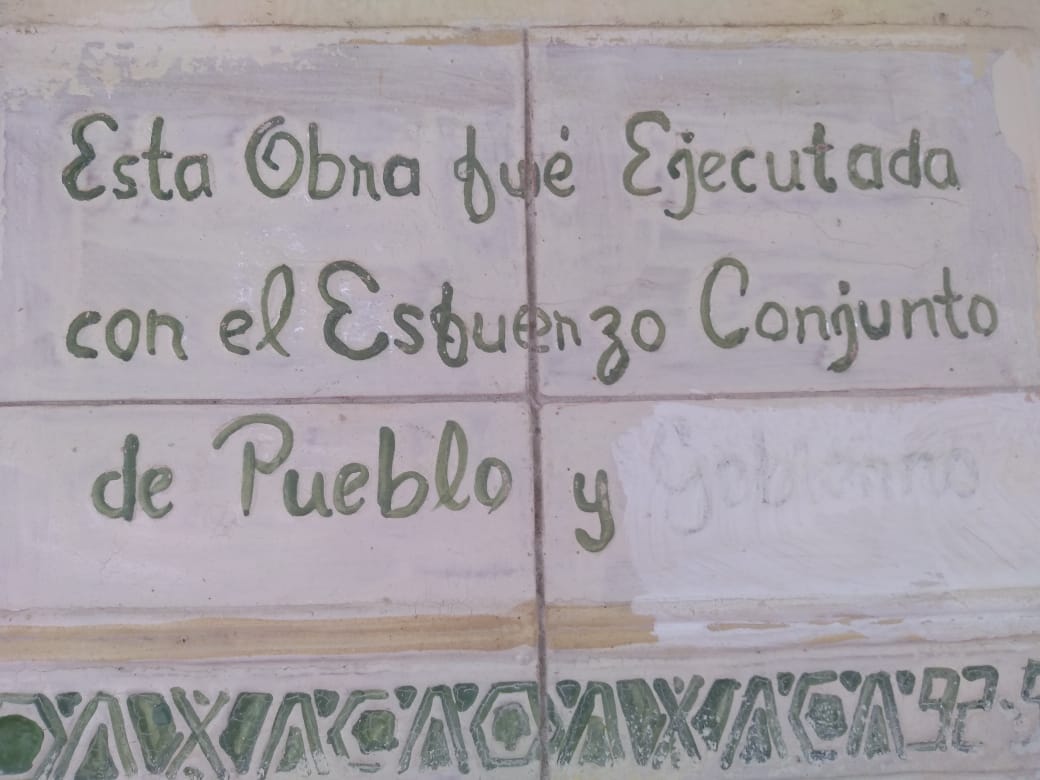 Esta Obra fué Ejecutada
con el Esfuerzo Conjunto
de Pueblo y Gobierno
OAXACA OAXACA 92-9